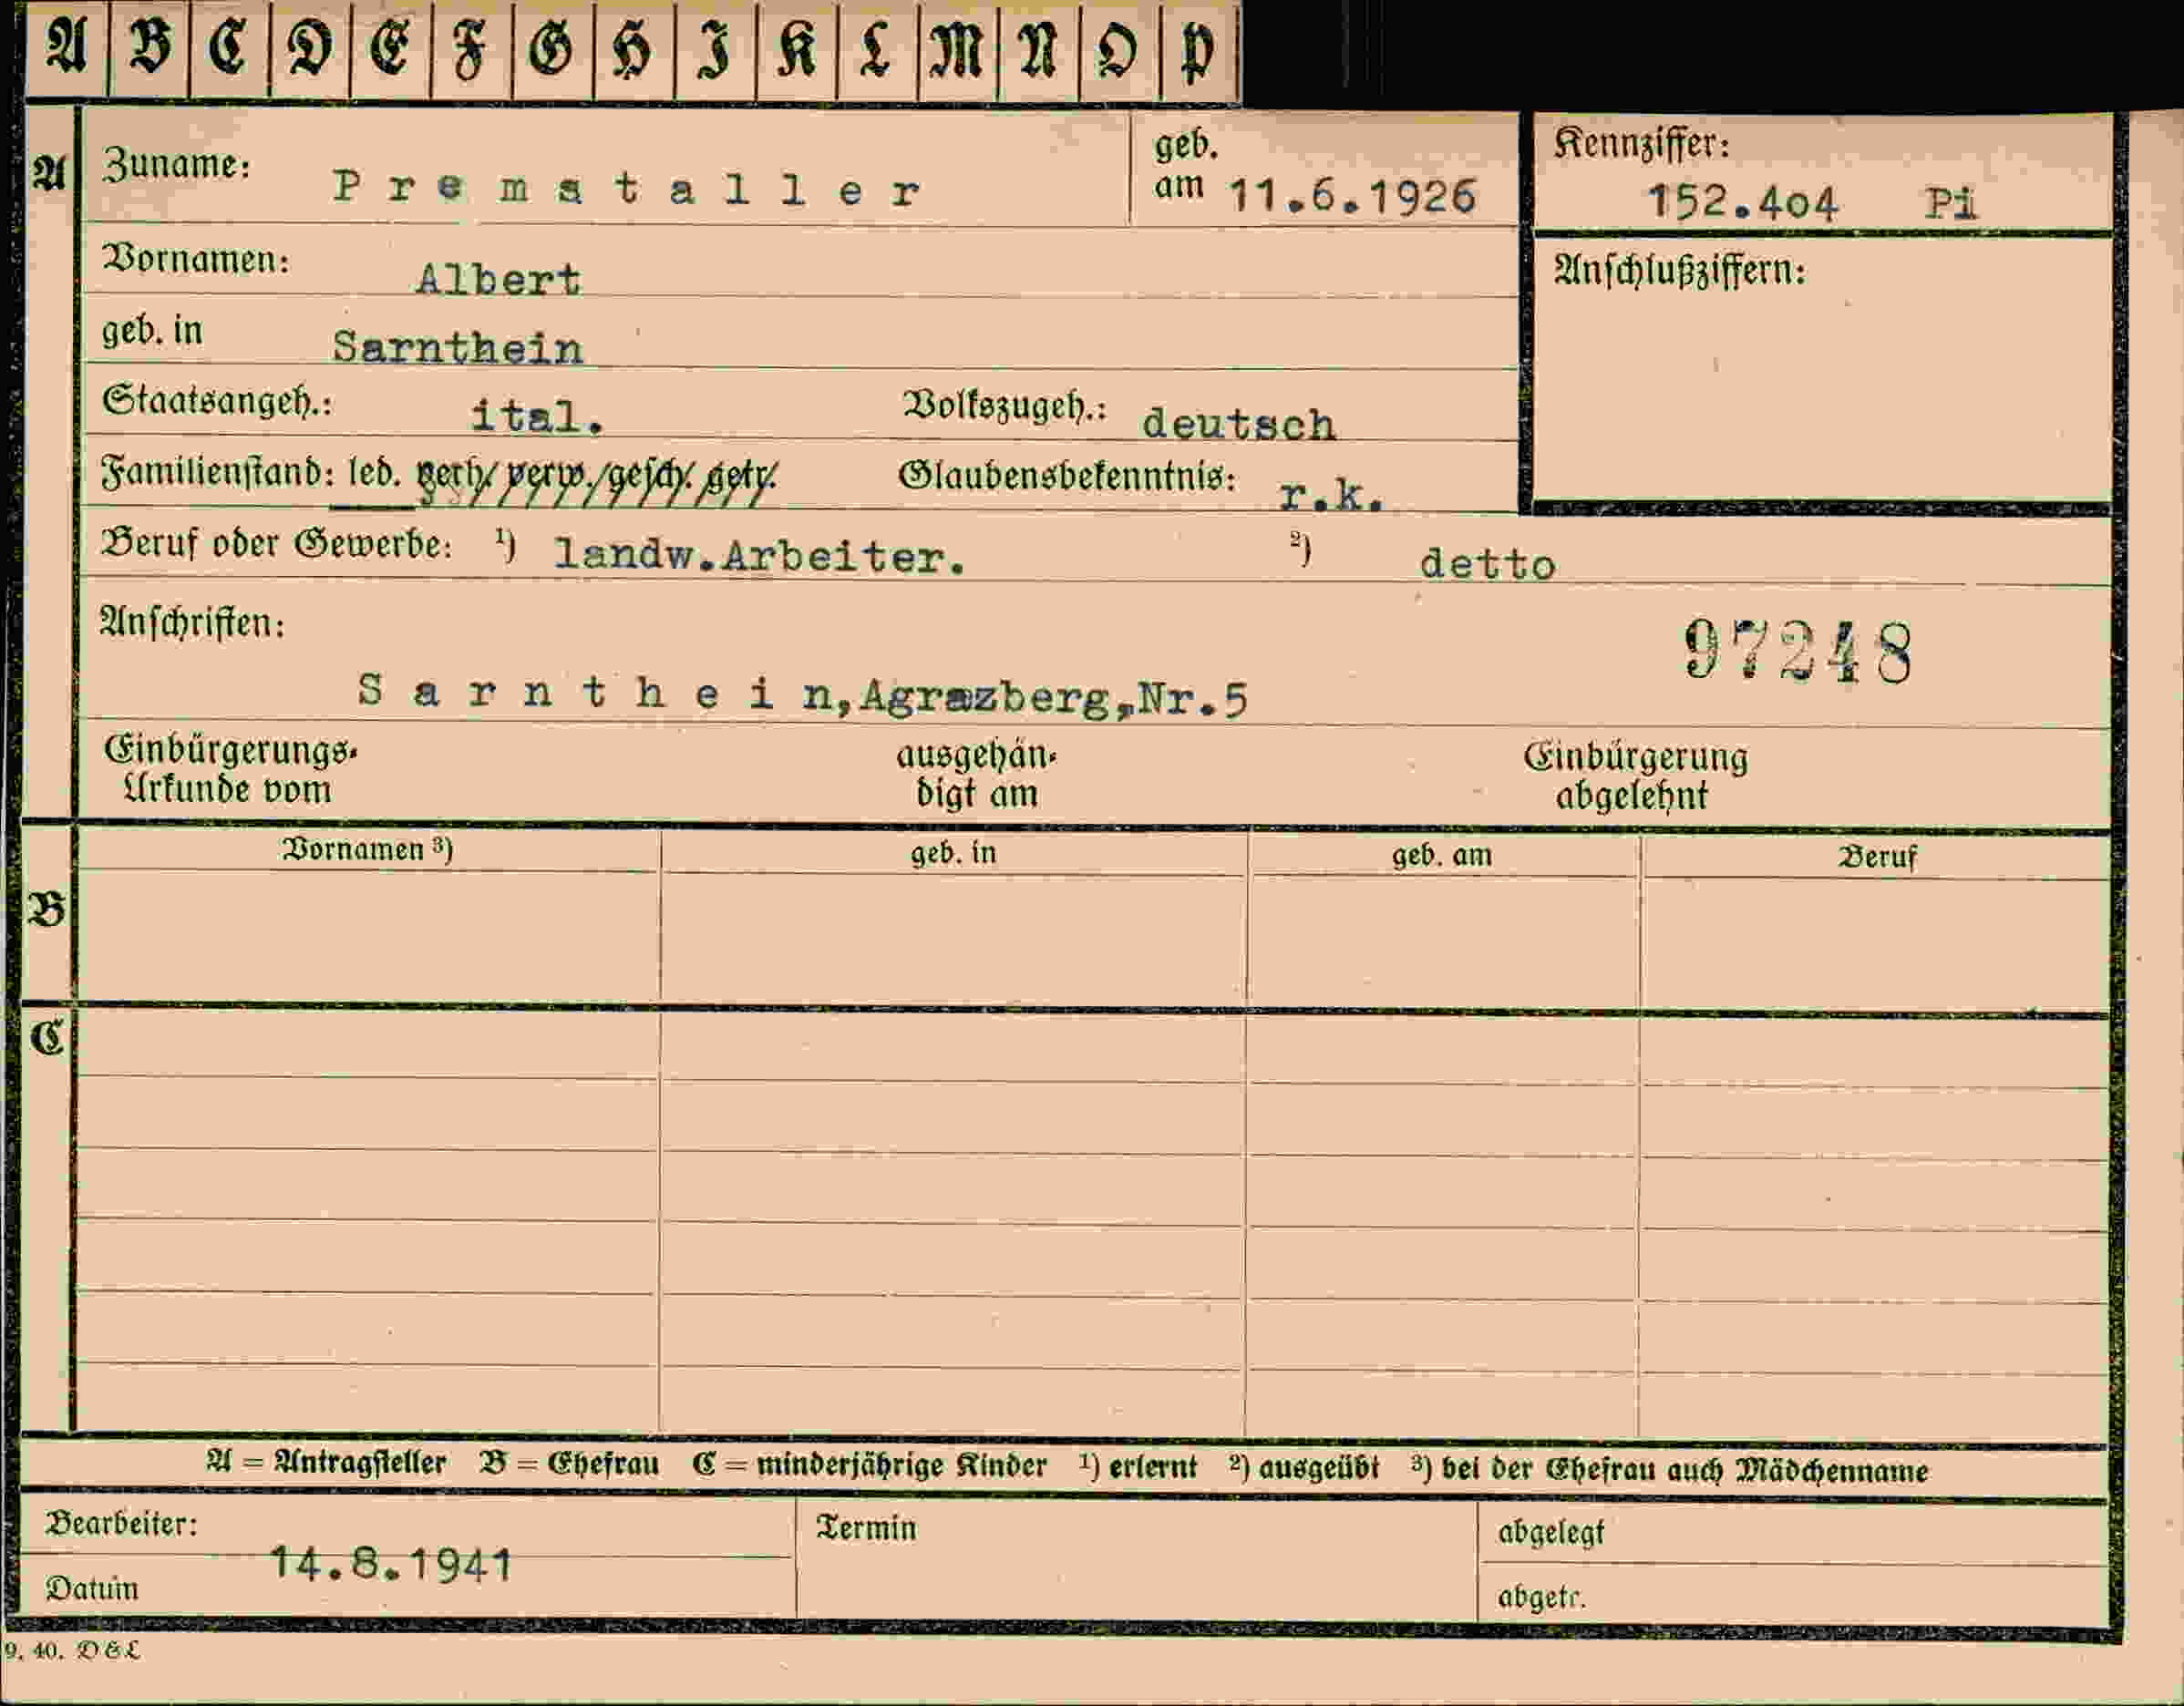 A B C D E F G H I K L M N O P
A Zuname: Premstaller geb. am 11.6.1926 Kennziffer: 152.4o4 Pi
Vornamen: Albert Anschlußziffern:
geb. in Sarnthein
Staatsangeh.: ital. Volkszugeh.: deutsch
Familienstand: led. verh. verw. gesch. getr. Glaubensbekenntnis: r.k.
Beruf oder Gewerbe: ¹) landw.Arbeiter. ²) detto
Anschriften: 97248
Sarnthein,Agrazberg,Nr.5
Einbürgerungs- ausgehän- Einbürgerung
Urkunde vom digt am abgelehnt
Vornamen ³) geb. in geb. am Beruf
B
C
A = Antragsteller B = Ehefrau C = minderjährige Kinder ¹) erlernt ²) ausgeübt ³) bei der Ehefrau auch Mädchenname
Bearbeiter: Termin abgelegt
14.8.1941
Datum abgetr.
9. 40. D&L